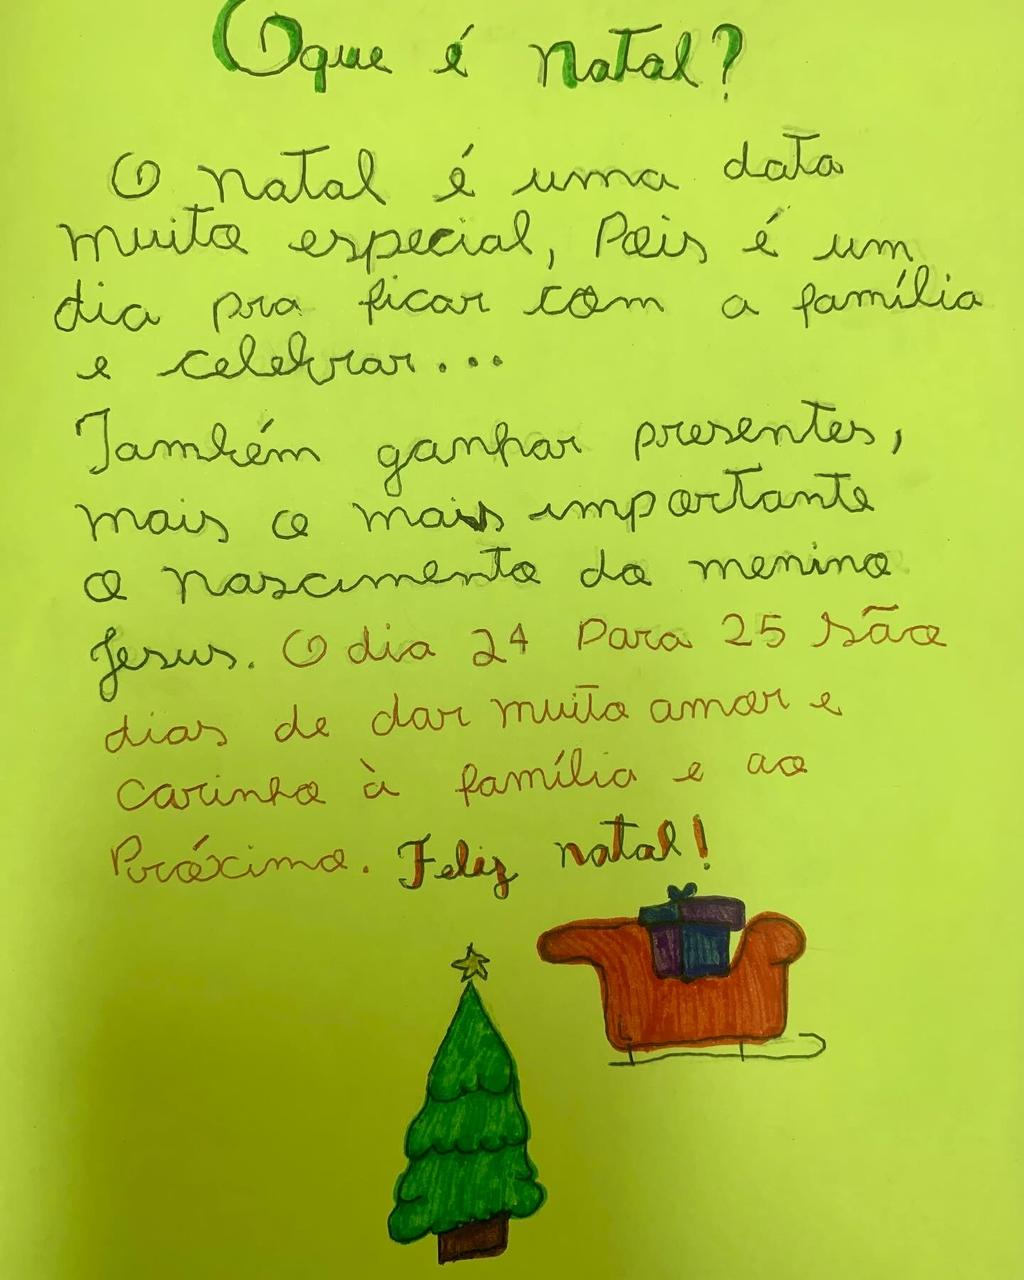 Oque é natal?
O natal é uma data
muito especial, Pois é um
dia pra ficar com a família
e celebrar...
Também ganhar presentes,
mais o mais importante
o nascimento do menino
Jesus. O dia 24 Para 25 são
dias de dar muito amor e
carinho à família e ao
Próximo. Feliz natal!